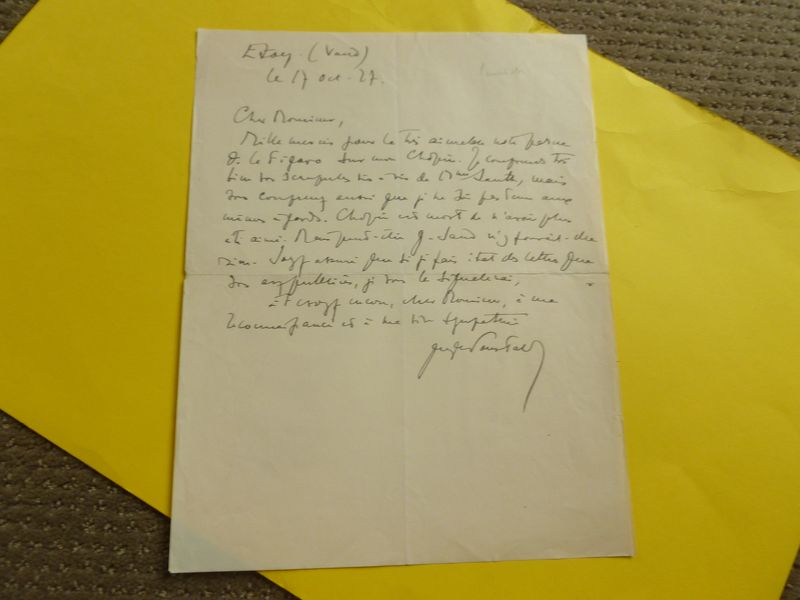 Etoy. (Vaud)
le 17 oct. 27.
Cher Monsieur,
Mille mercis pour la très aimable note parue
d. le Figaro sur mon Chopin. Je comprends très
bien vos scrupules vis-à-vis de Mme Sand, mais
vous comprenez aussi que je ne sois pas tenu aux
mêmes égards. Chopin est mort de n'avoir plus
été aimé. Mais peut-être G. Sand n'y pouvait-elle
rien. Soyez assuré que si je fais état des lettres que
vous avez publiées, je vous le signalerai,
et croyez encore, cher Monsieur, à ma
reconnaissance et à ma vive sympathie